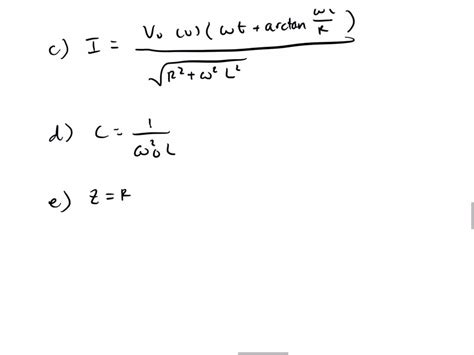 c) I = V₀ cos(ωt + arctan ωL/R) / √(R² + ω² L²)
d) C = 1 / ω₀² L
e) Z = R